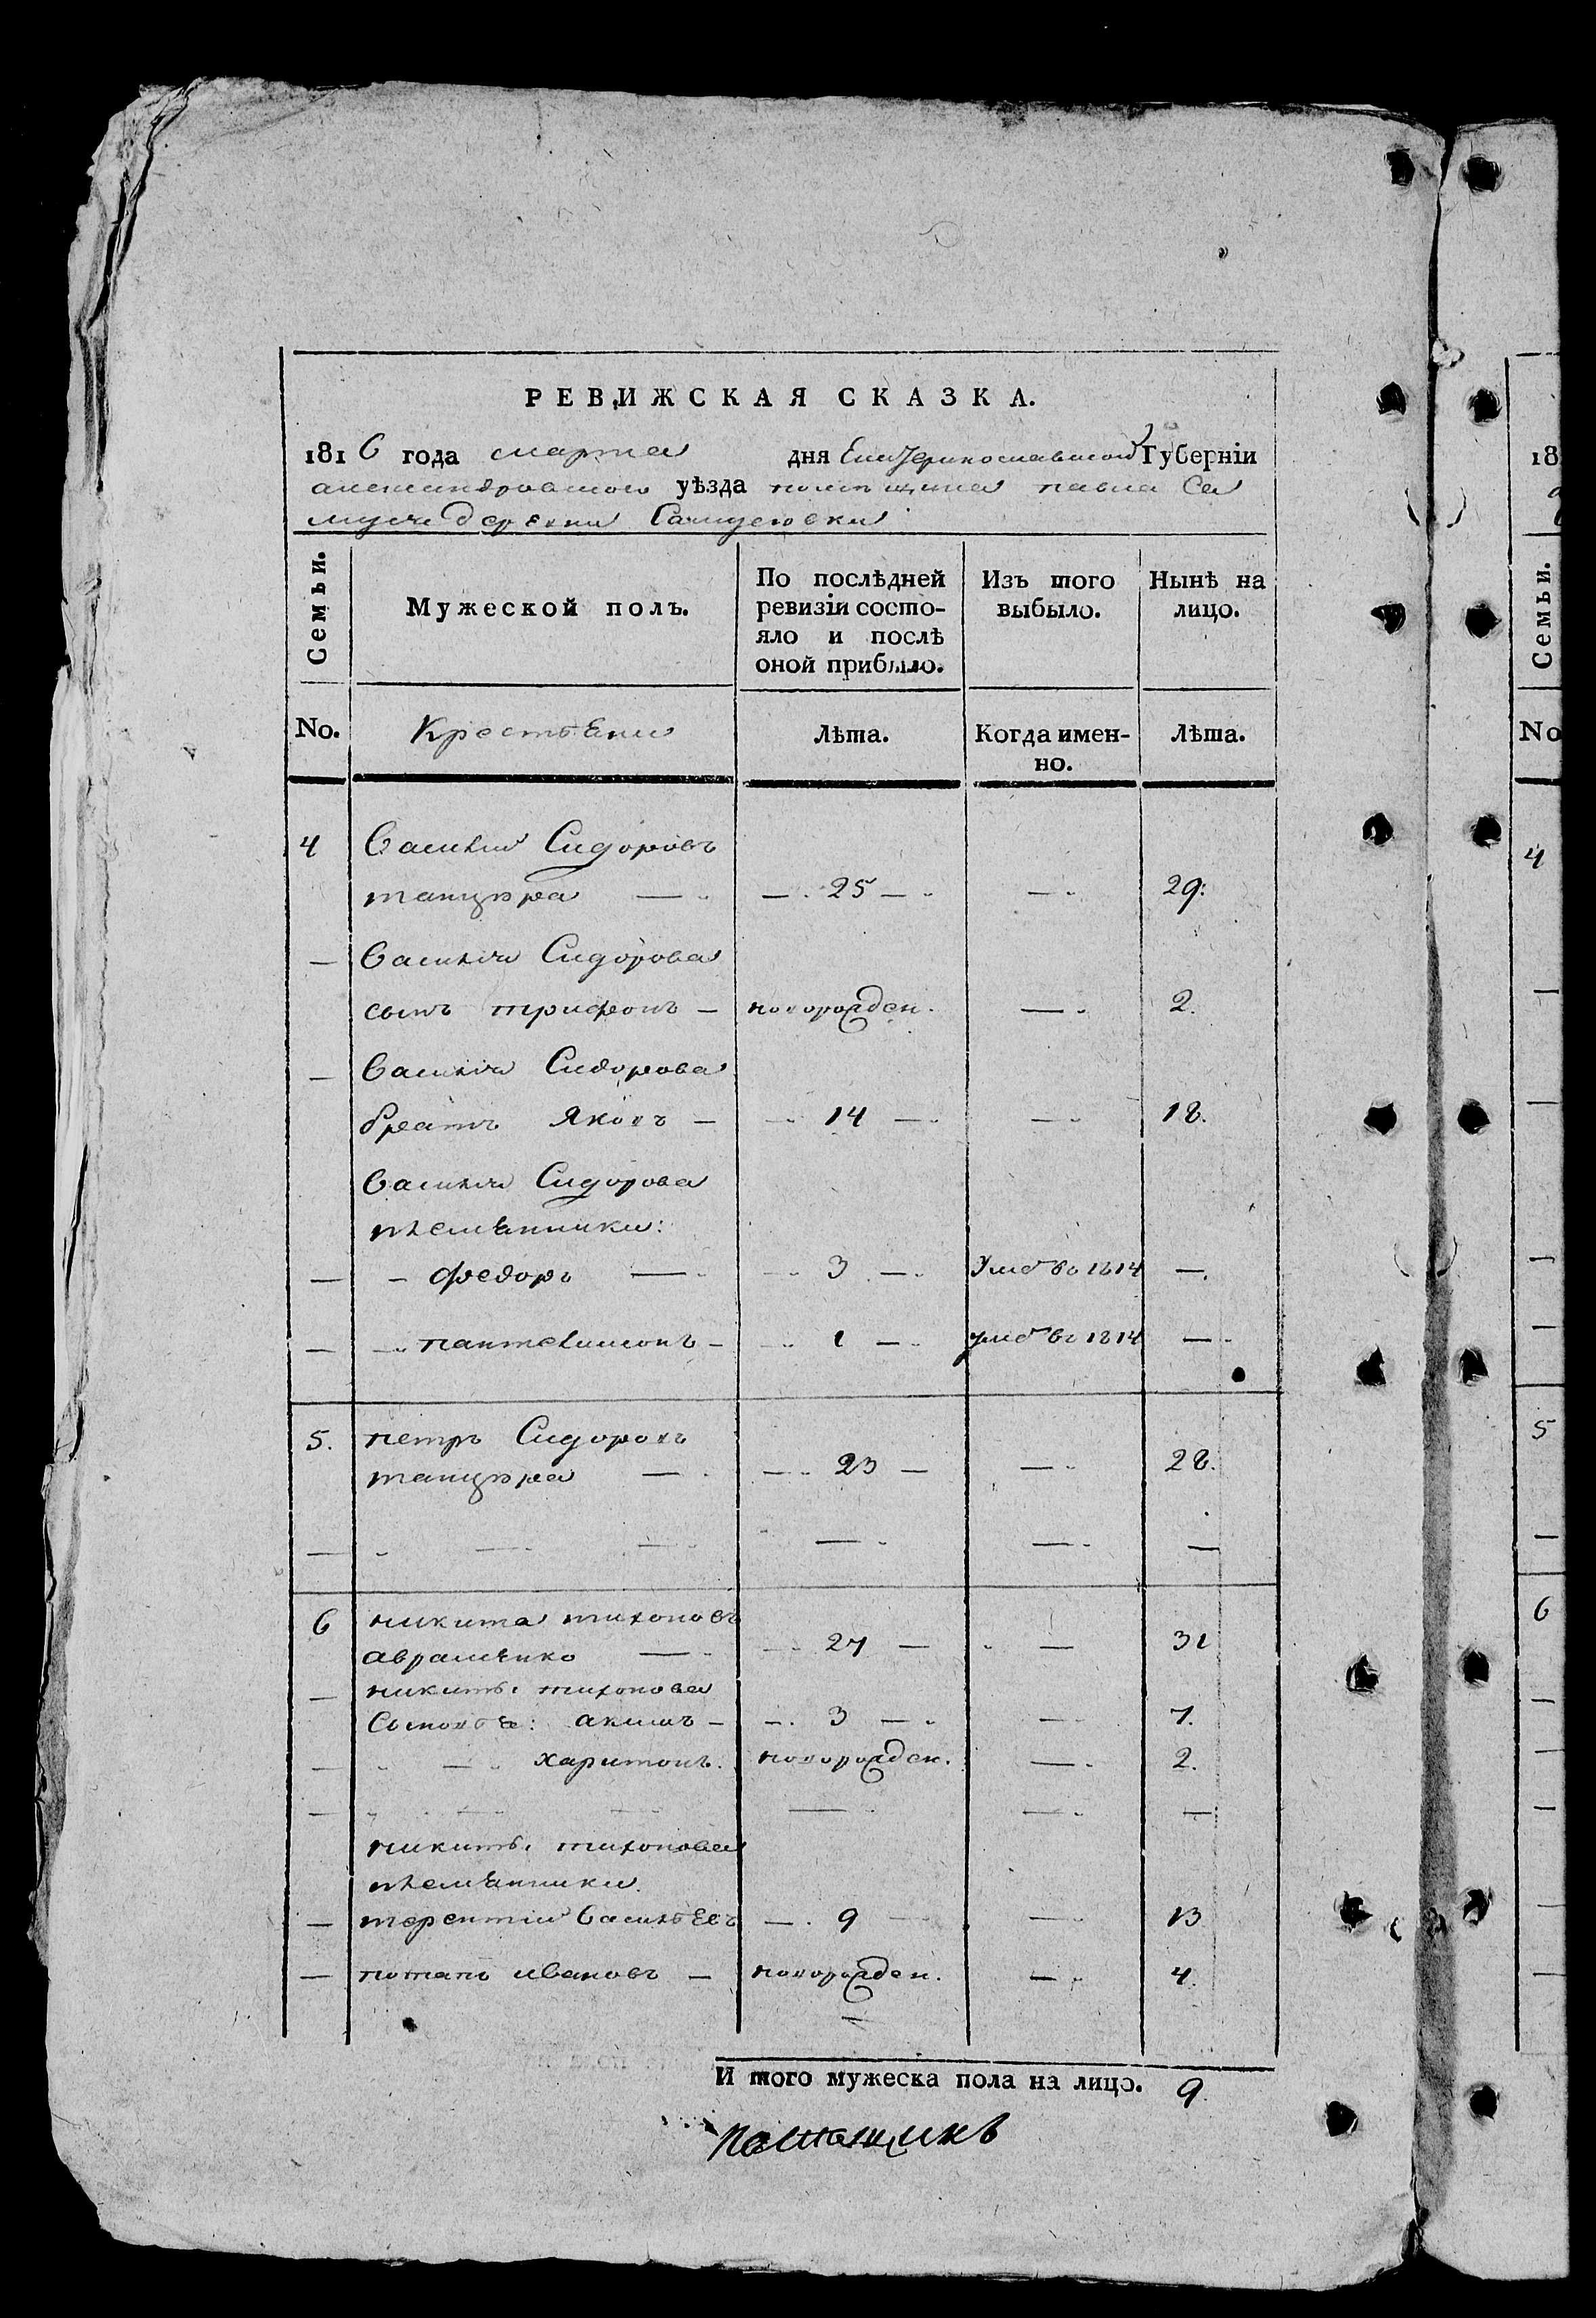 РЕВИЖСКАЯ СКАЗКА.
1816 года марта дня Екатеринославской Губерніи
александровского уѣзда помѣщика павла Са
деревни
Семьи.
Мужеской полъ.
По послѣдней ревизіи состояло и послѣ оной прибыло.
Изъ того выбыло.
Нынѣ на лицо.
No.
Крестьяни
Лѣта.
Когда именно.
Лѣта.
4 Василий Сидоровъ
танцюра — — 25 — — 29.
— Василия Сидорова
сынъ трифонъ — новорожден. — 2.
— Василия Сидорова
братъ Яковъ — 14 — — 18.
Василия Сидорова
племянники:
— федоръ — 3 — Умѣ въ 1814 —
— пантелимонъ — 1 — умѣ въ 1814 —
5. петръ Сидоровъ
танцюра — — 23 — — 28.
— — — — — —
6 никита тихоновъ
авраменко — 27 — — 31
— никиты тихонова
Сыновья: акимъ — 3 — — 7.
— — харитонъ. новорожден. — 2.
— — — — — —
никиты тихонова
племянники
— терентий Васильевъ — 9 — — 13
— потапъ ивановъ — новорожден. — 4.
И того мужеска пола на лицо. 9.
18
Семьи.
No
4
5
6